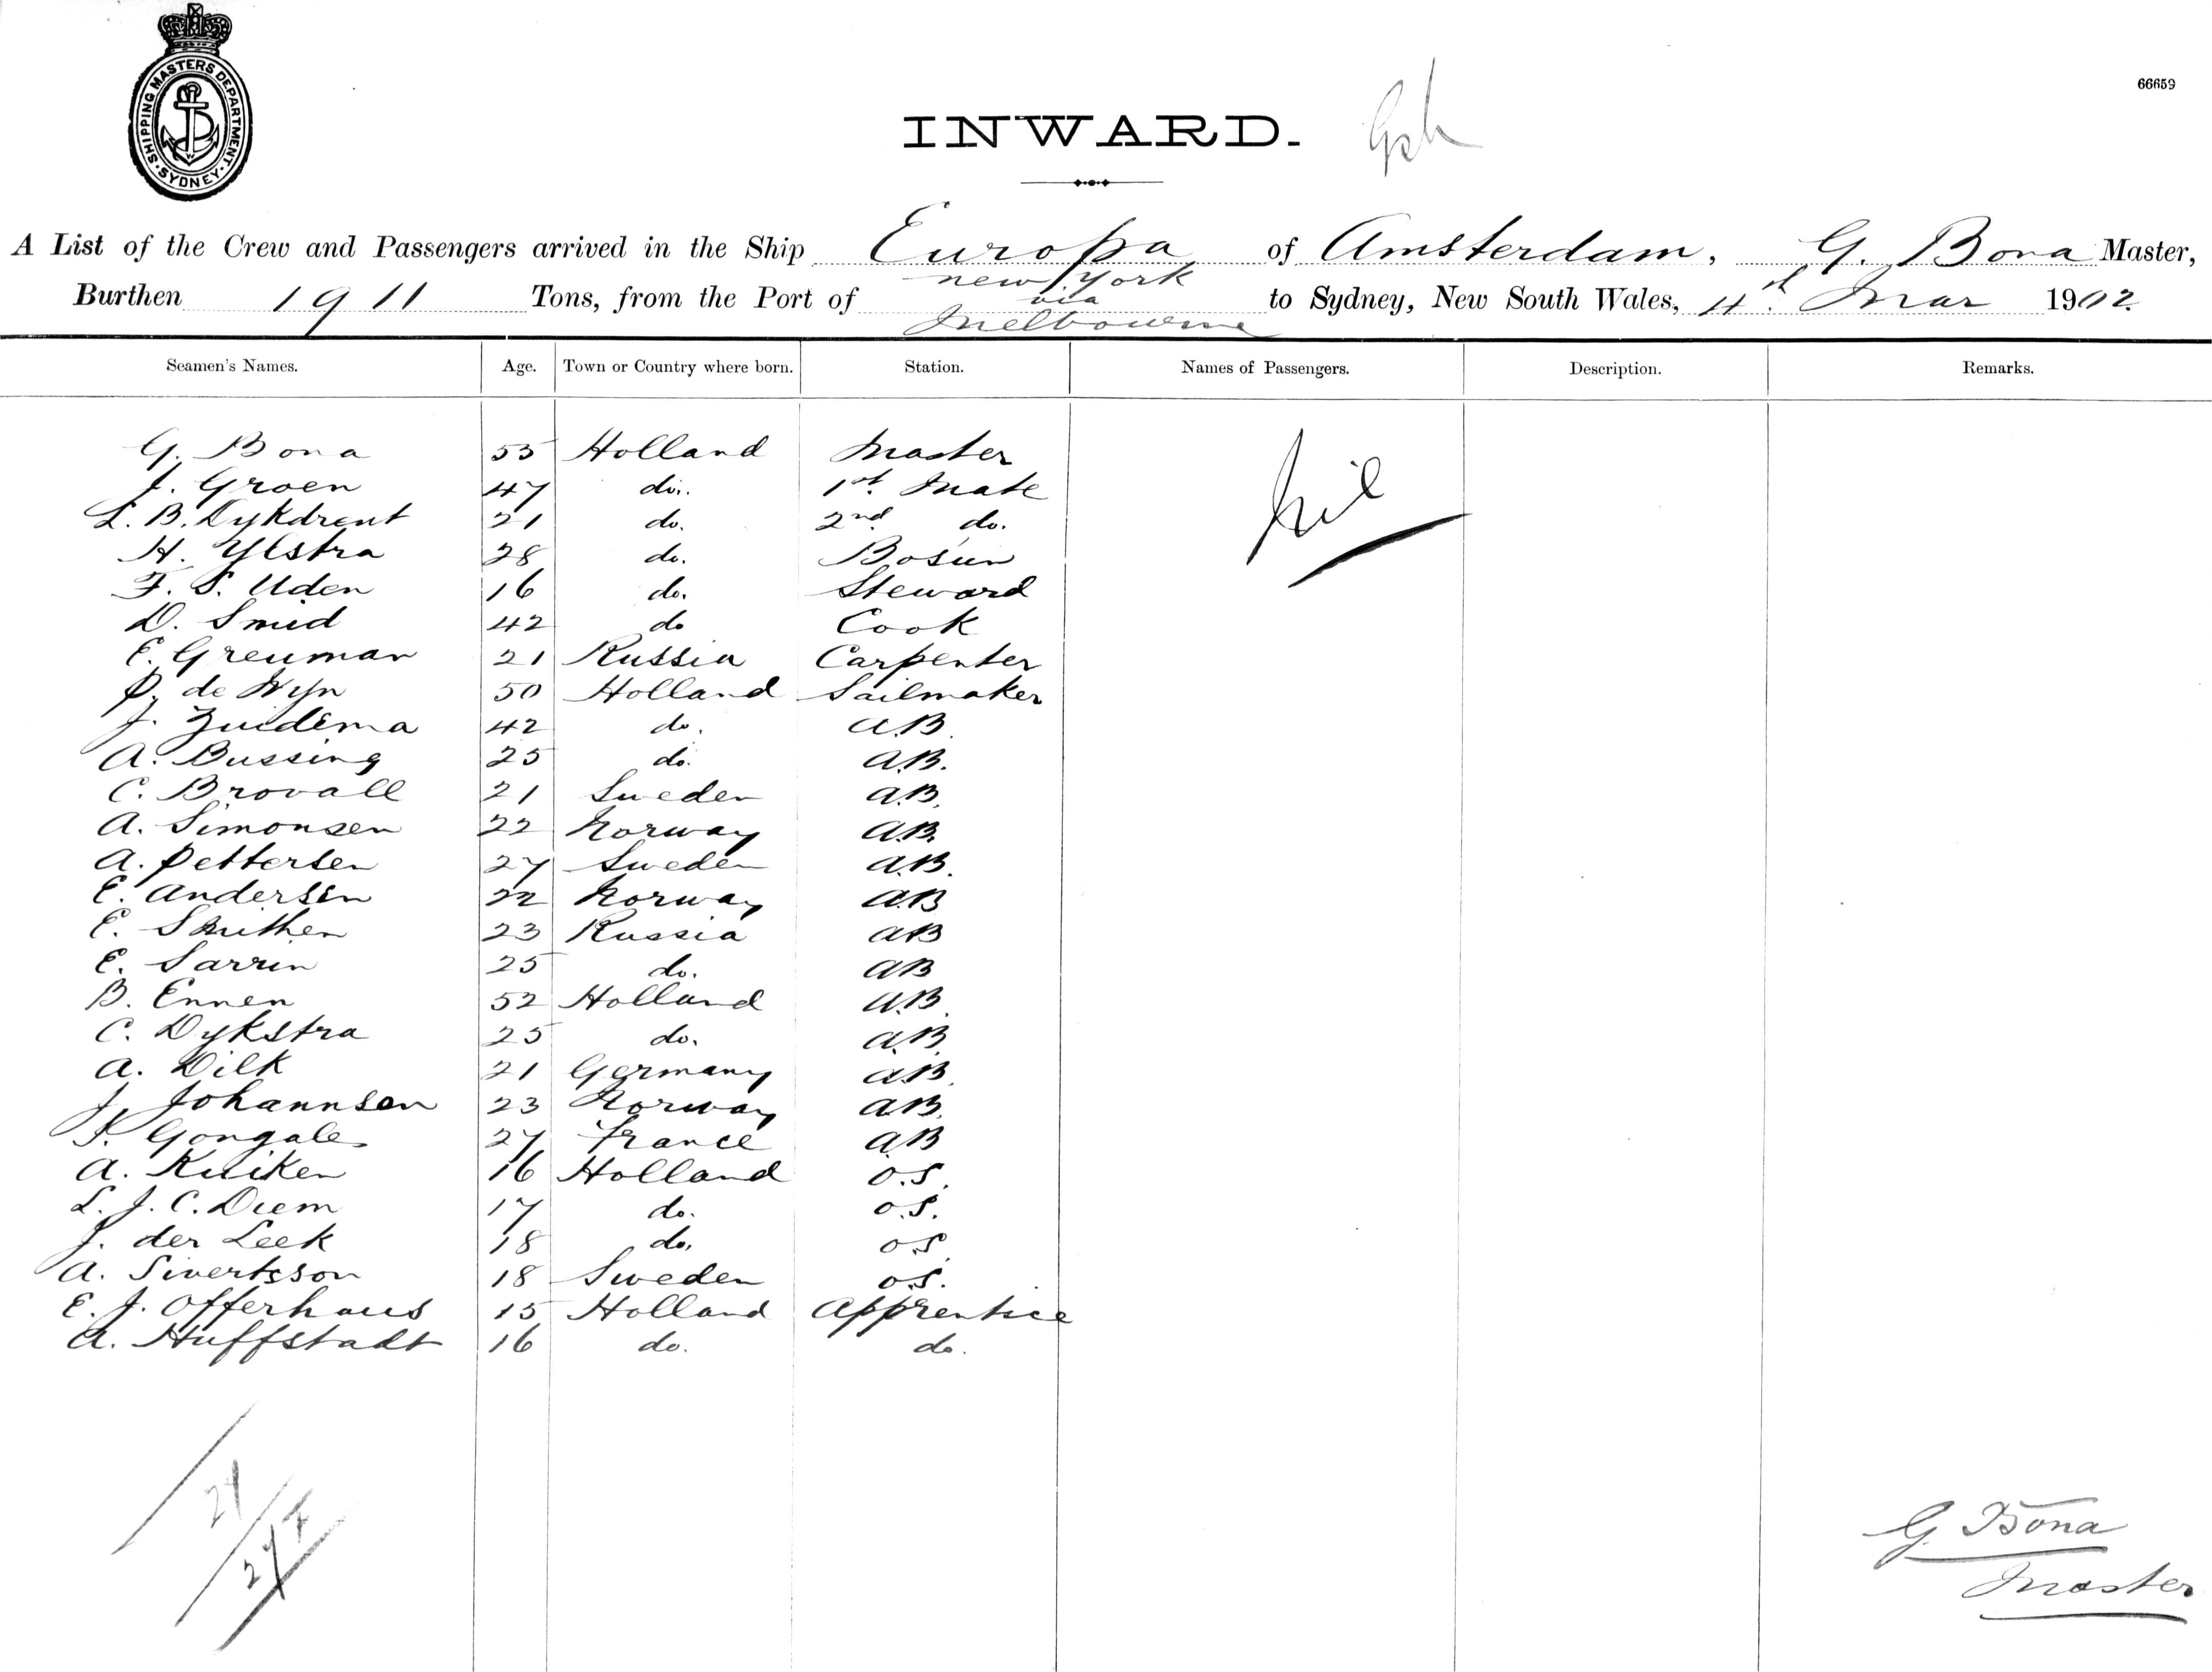 SHIPPING MASTERS DEPARTMENT. SYDNEY.
66659
INWARD.
A List of the Crew and Passengers arrived in the Ship Europa of Amsterdam, G. Bona Master,
Burthen 1911 Tons, from the Port of new York via Melbourne to Sydney, New South Wales, 4th Mar 1902.
Seamen's Names. Age. Town or Country where born. Station. Names of Passengers. Description. Remarks.
G. Bona 55 Holland Master Nil
J. Groen 47 do. 1st. Mate
L. B. Dykdrent 21 do. 2nd do.
H. Ylstra 28 do. Bosun
F. S. Uden 16 do. Steward
D. Smid 42 do Cook
E. Greuman 21 Russia Carpenter
P. de Wyn 50 Holland Sailmaker
J. Zuidema 42 do. A.B.
A. Bussing 25 do. A.B.
C. Brovall 21 Sweden A.B.
A. Simonsen 22 Norway A.B.
A. Pettersen 27 Sweden A.B.
E. Andersen 22 Norway A.B
E. 23 Russia AB
E. Sarrin 25 do. AB
B. Ennen 52 Holland A.B.
C. Dykstra 25 do. A.B.
A. Dilk 21 Germany A.B.
J. Johannsen 23 Norway A.B.
Gongales 27 France A.B
A. Kuiken 16 Holland O.S.
L. J. C. Diem 17 do. O.S.
J. der Leek 18 do. O.S.
A. Sivertsson 18 Sweden O.S.
E. J. Offerhaus 15 Holland Apprentice
A. Huffstadt 16 do. do.
27
G. Bona
Master